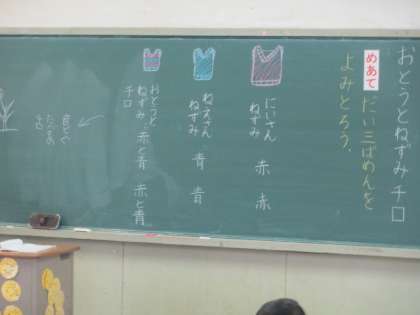 おとうとねずみチロ
めあて
だい三ばめんを
よみとろう。
にいさん
ねずみ 赤 赤
ねえさん
ねずみ 青 青
おとうと
ねずみ、赤と青 赤と青
チロ